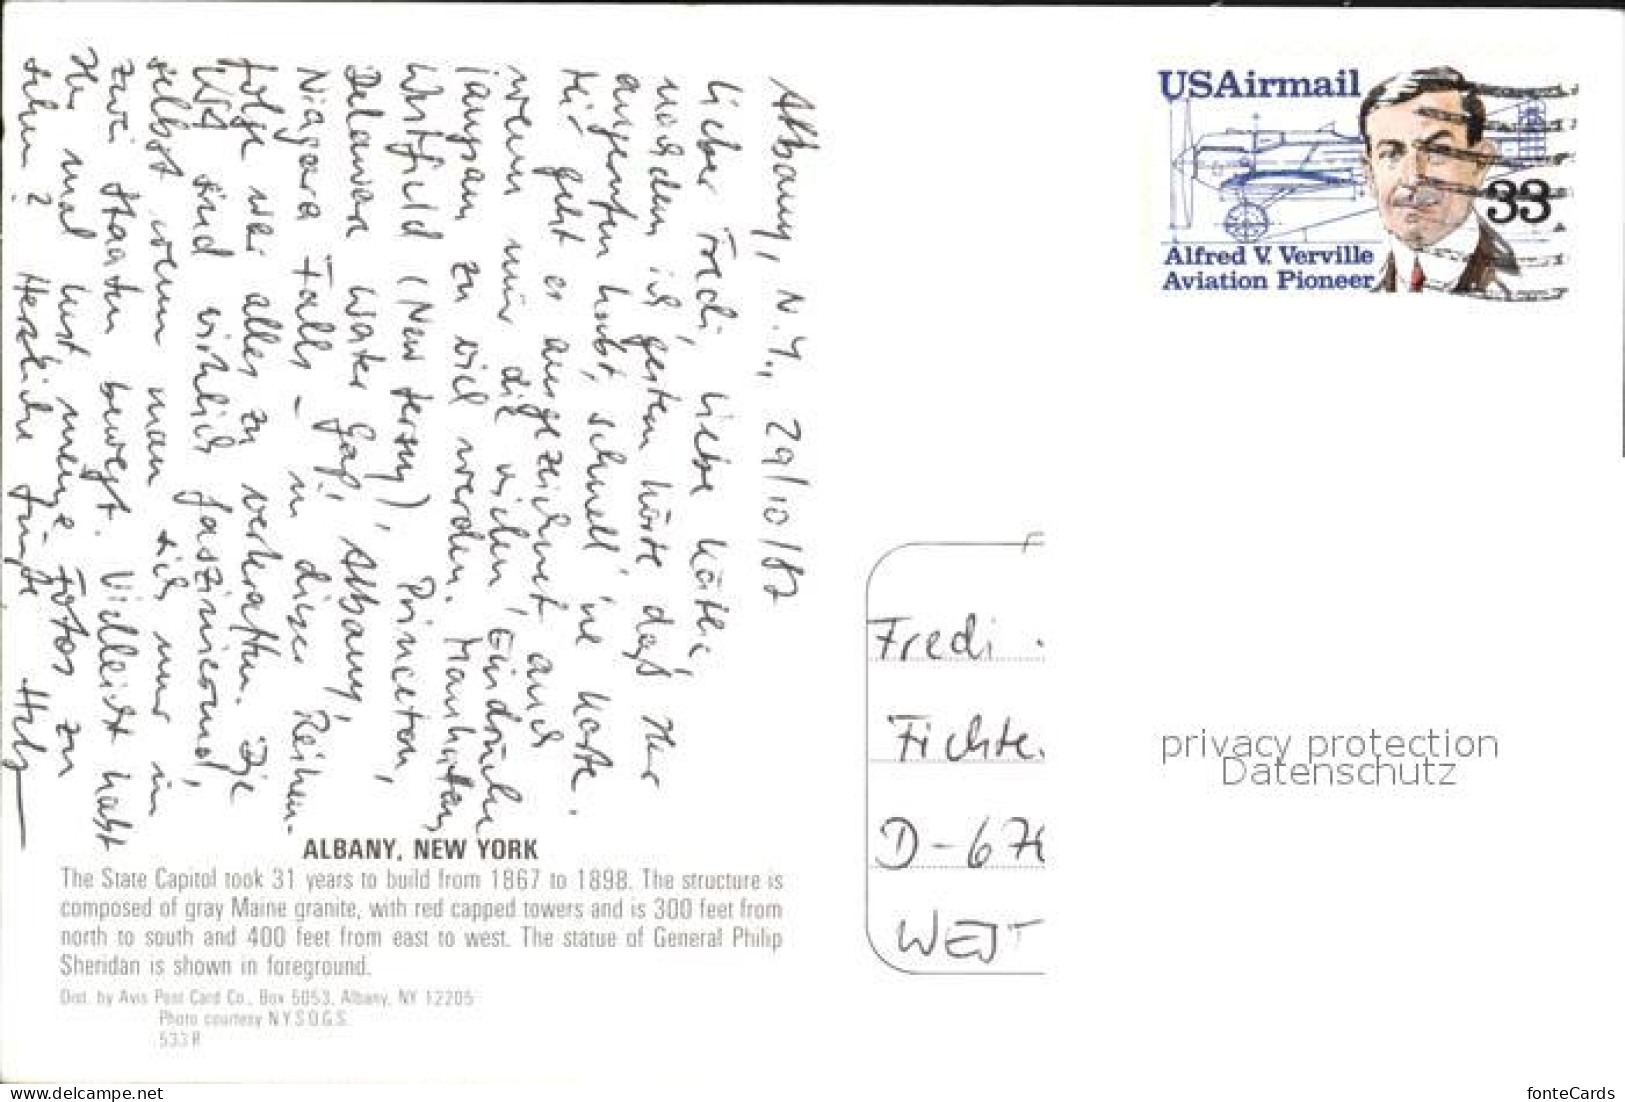 Albany, N.Y., 29/10/87
Lieber Fredi, liebe Käthe,
nachdem ich gestern hörte daß Ihr
angerufen habt, schnell 'ne Karte.
Mir geht es ausgezeichnet, auch
wenn mir die vielen Eindrücke
langsam zu viel werden. Manhattan,
Westfield (New Jersey), Princeton,
Delaware Water Gap, Albany,
Niagara Falls – in dieser Reihen-
folge alles zu verkraften. Die
USA sind wirklich faszinierend,
selbst wenn man sich nur in
zwei Staaten bewegt. Vielleicht habt
Ihr mal Lust meine Fotos zu
sehen? Herzliche Grüße
ALBANY, NEW YORK
The State Capitol took 31 years to build from 1867 to 1898. The structure is
composed of gray Maine granite, with red capped towers and is 300 feet from
north to south and 400 feet from east to west. The statue of General Philip
Sheridan is shown in foreground.
Dist. by Avis Post Card Co., Box 5053, Albany, NY 12205
Photo courtesy N.Y.S.O.G.S.
533R
USAirmail
33
Alfred V. Verville
Aviation Pioneer
Fredi
Fichte
D-67
WEST
privacy protection
Datenschutz
delcampe.net
fonteCards